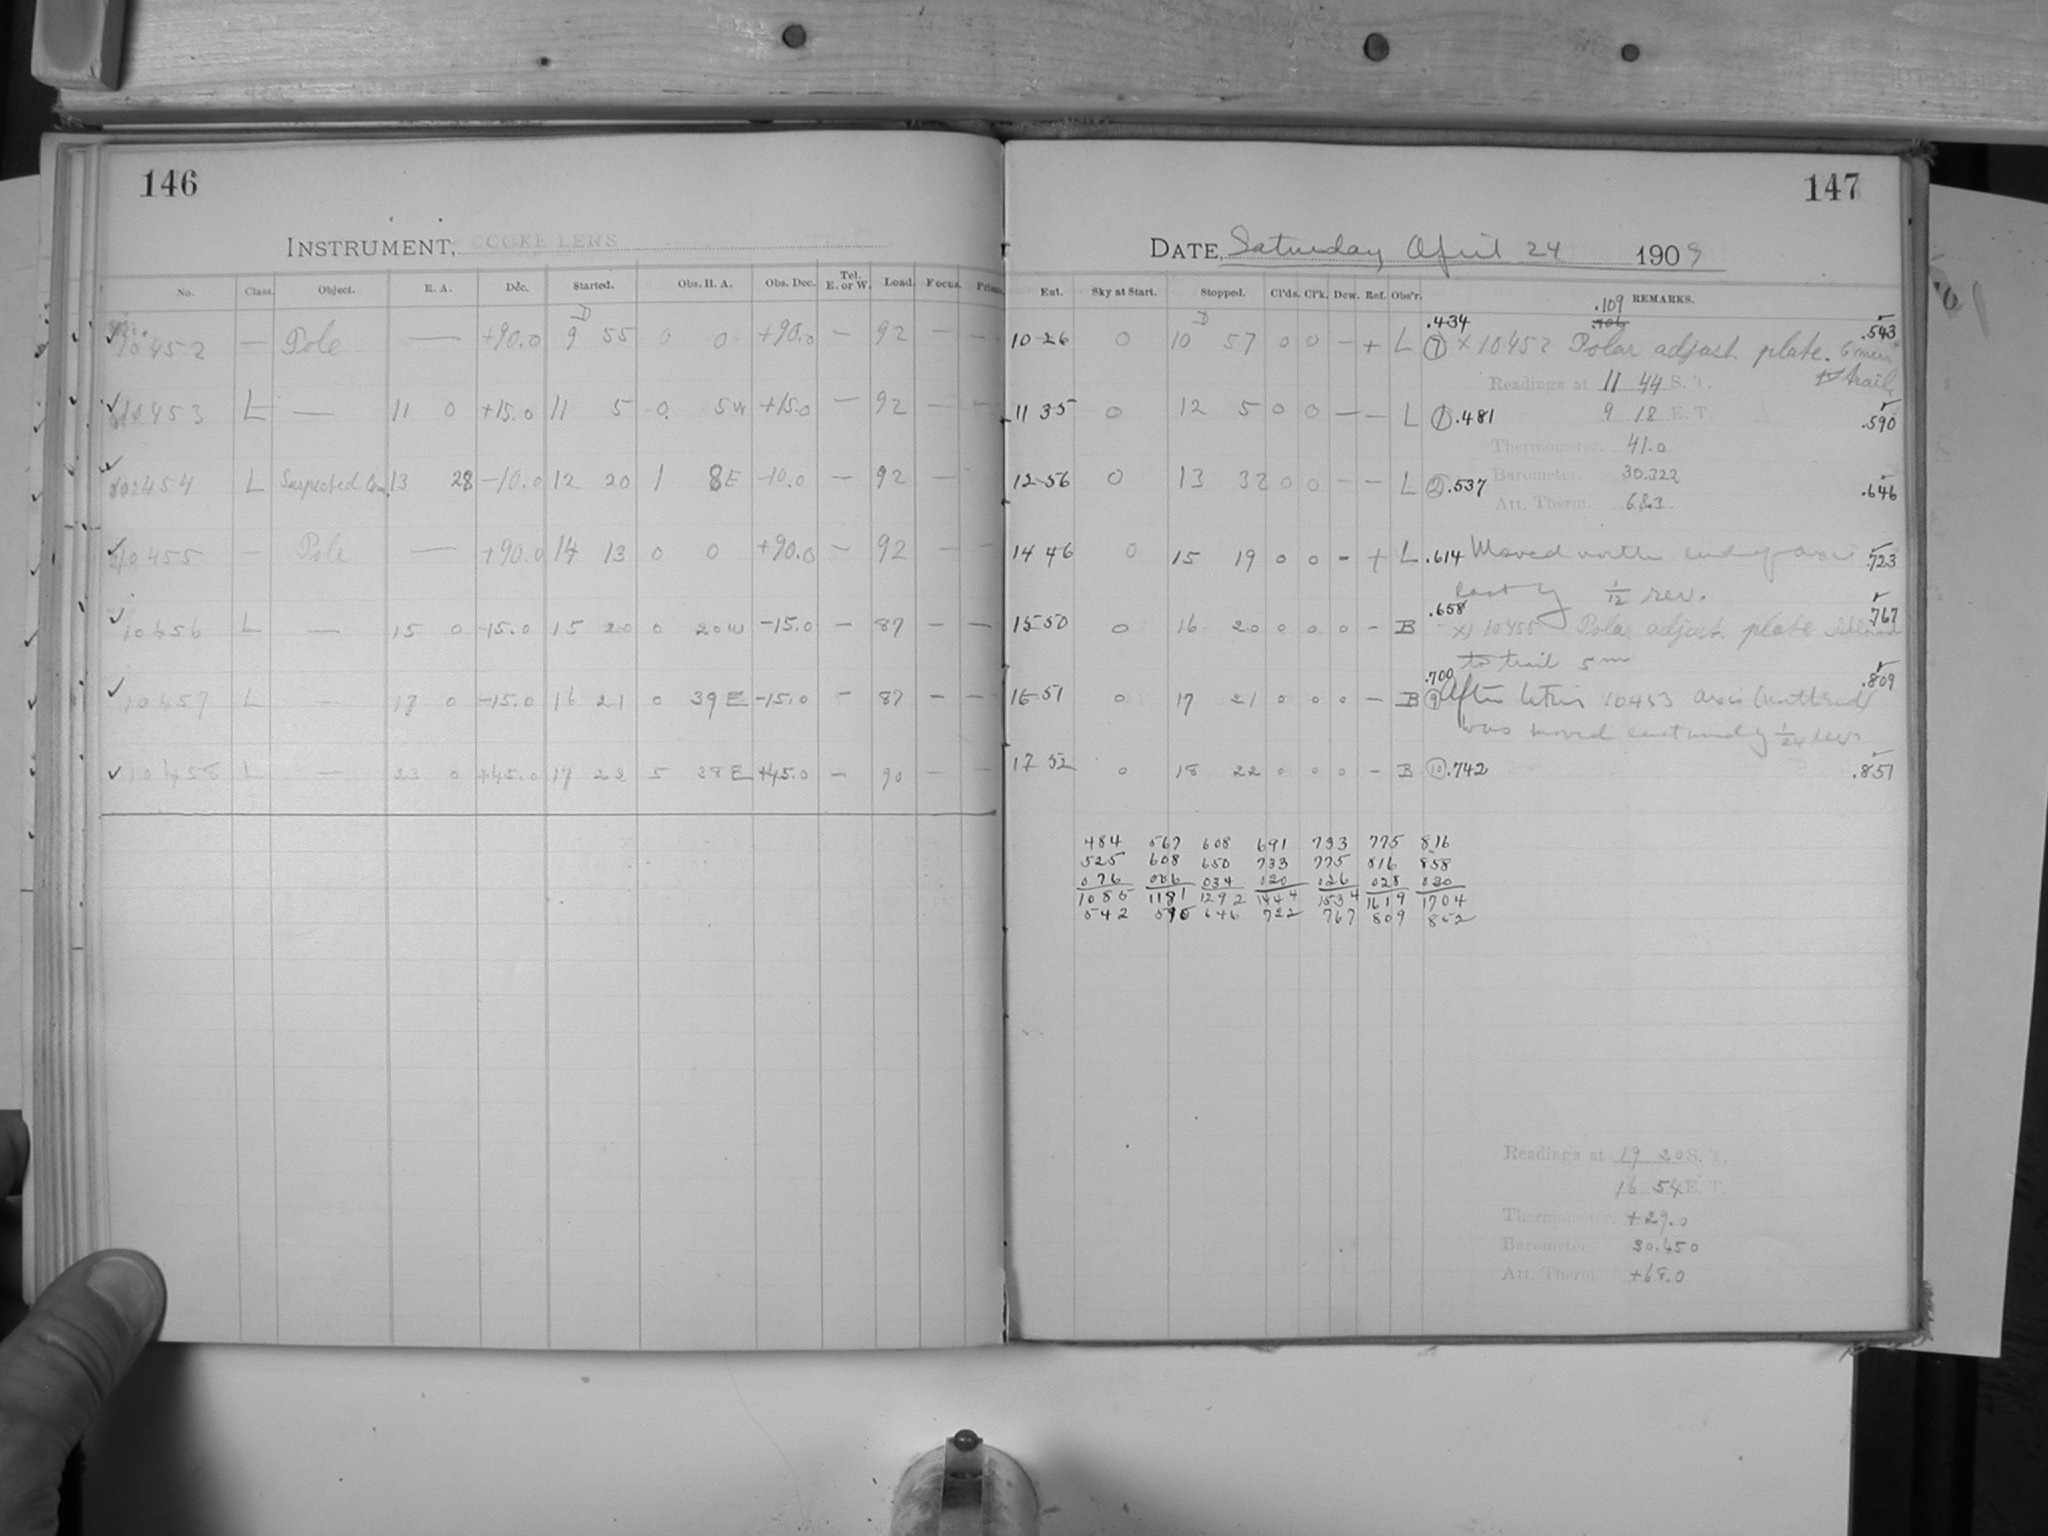 146
INSTRUMENT, COOKE LENS
No. Class. Object. R. A. Dec. Started. Obs. H. A. Obs. Dec. Tel. E. or W. Load. Focus.
✓ 10452 — Pole — +90.0 9 55 0 0 +90.0 — 92 — —
✓ 10453 L — 11 0 +15.0 11 5 0 5W +15.0 — 92 — —
✓ 10454 L Suspected 13 28 -10.0 12 20 1 8E -10.0 — 92 —
✓ 10455 — Pole — +90.0 14 13 0 0 +90.0 — 92 — —
✓ 10456 L — 15 0 -15.0 15 20 0 20W -15.0 — 87 — —
✓ 10457 L — 17 0 -15.0 16 21 0 39E -15.0 — 87 — —
✓ 10458 L — 23 0 +45.0 17 22 5 38E +45.0 — 90 — —
147
DATE, Saturday April 24 1909
Ent. Sky at Start. Stopped. Cl'ds. Cl'k. Dew. Ref. Obs'r. REMARKS.
.434 .109 .543
10 26 0 10 57 0 0 — + L 7 × 10452 Polar adjust. plate. 6 min
trail
Readings at 11 44 S. T.
11 35 0 12 5 0 0 — — L 1 .481 9 18 E. T. .590
Thermometer. 41.0
12 56 0 13 32 0 0 — — L 2 .537 Barometer. 30.322 .646
Att. Therm. 68.3
14 46 0 15 19 0 0 - + L .614 Moved north end of axis .723
East by 1/12 rev.
.658 .767
15 50 0 16 20 0 0 0 - B × 10455 Polar adjust. plate Allowed
to trail 5m
.700 .809
16 51 0 17 21 0 0 0 — B 9 After 10453 axis (north end)
was moved eastward by 1/24 rev.
17 52 0 18 22 0 0 0 - B 10 .742 .851
484 567 608 691 733 775 816
525 608 650 733 775 816 858
076 006 034 020 026 028 030
1085 1181 1292 1444 1534 1619 1704
542 590 646 722 767 809 852
Readings at 19 20 S. T.
16 54 E. T.
Thermometer. +29.0
Barometer 30.450
Att. Therm. +68.0